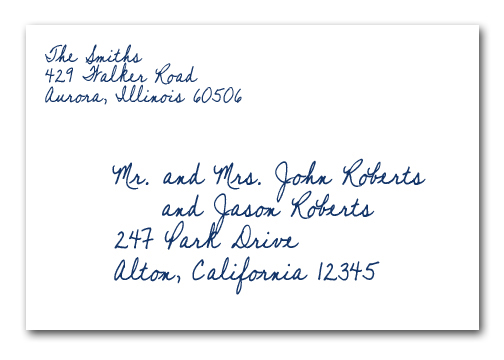 The Smiths
429 Walker Road
Aurora, Illinois 60506
Mr. and Mrs. John Roberts
and Jason Roberts
247 Park Drive
Alton, California 12345